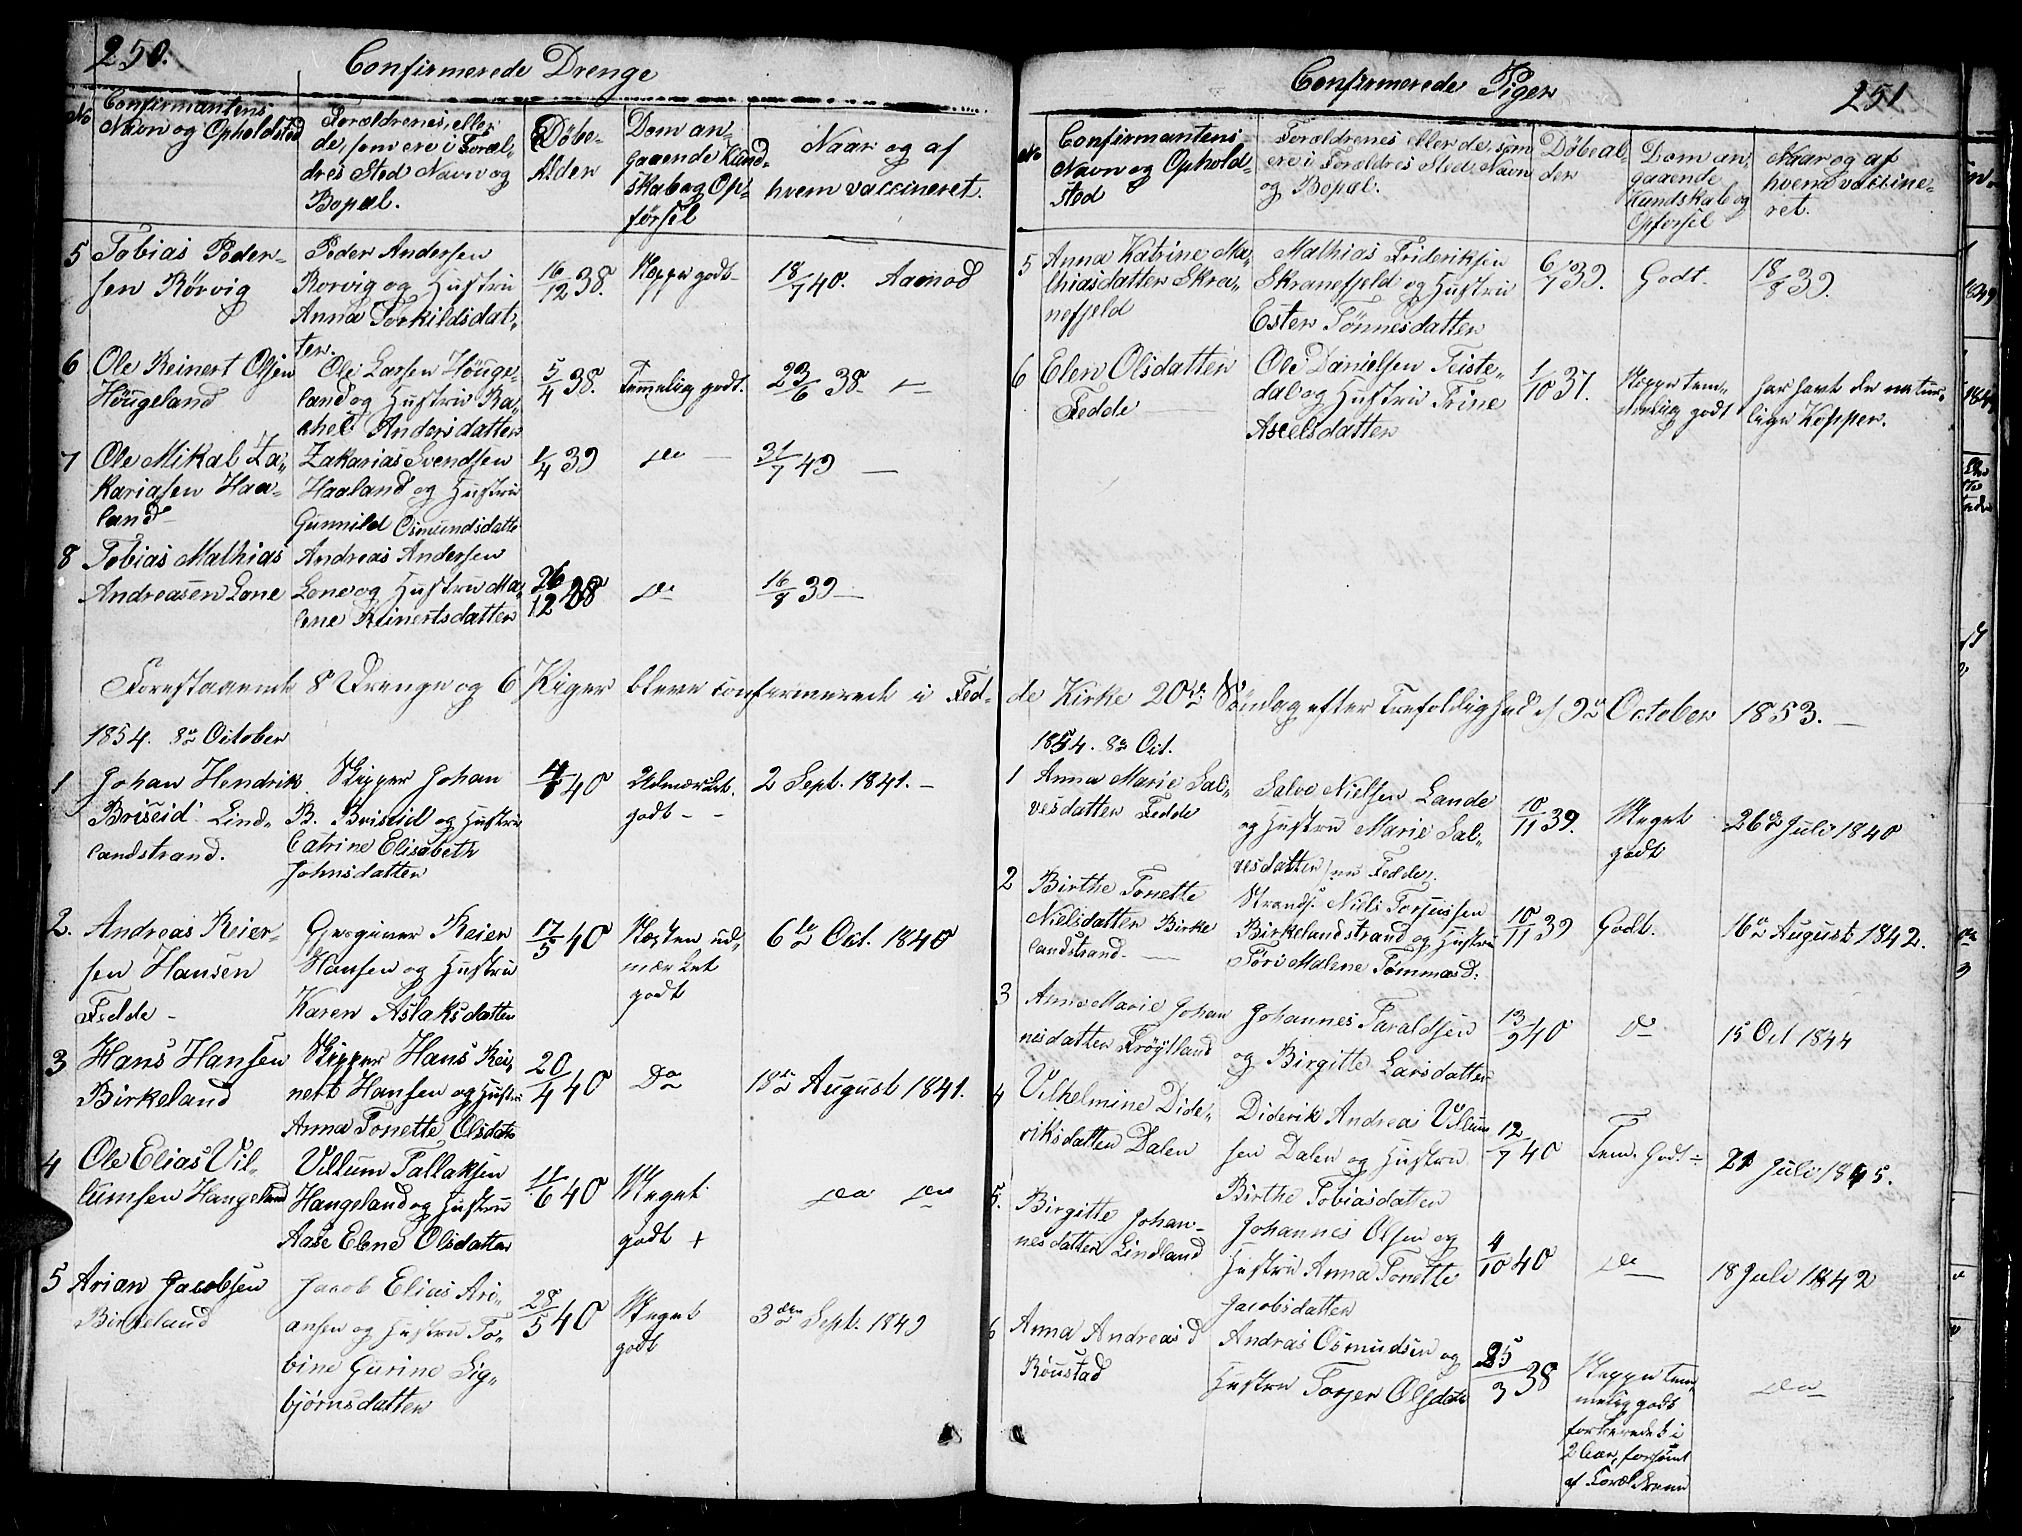 250.
Confirmerede Drenge
No
Confirmantens
Navn og Opholdsted
Forældrenes, eller
de, som ere i Foræl-
dres Sted Navn og
Bopæl.
Døbe-
Alder
Dom an-
gaaende Kund-
skab og Op-
førsel
Naar og af
hvem vaccineret.
5 Tobias Peder-
sen Rørvig
Peder Andersen
Rorvig og Hustru
Anna Torkildsdat-
ter.
16/12 38.
Neppe godt
18/7 40. Aamod
6 Ole Reinert Olsen
Høugeland
Ole Larsen Høuge-
land og Hustru Ra-
chel Andersdatter
5/4 38.
Temmelig godt.
23/6 38 -
7 Ole Mikal Za-
kariasen Haa-
land
Zakarias Svendsen
Haaland og Hustru
Gunnild Osmundsdatte
1/4 39
do
31/7 49 -
8 Tobias Mathias
Andreasen Lone
Andreas Andersen
Lone og Hustru Ma-
lene Reinertsdatter
26/12 38
do
16/8 39 -
Forestaaende 8 Drenge og 6 Piger bleve confirmerede i Fed-
1854. 8de October
1 Johan Hendrik
Briseid Lind-
landstrand.
Skipper Johan
B. Briseid og Hustru
Catrine Elisabeth
Johnsdatter
4/8 40
Udmærket
godt - -
2 Sept. 1841. -
2. Andreas Reier-
sen Hansen
Fedde -
Gjæsgiver Reier
Hansen og Hustru
Karen Aslaksdatter
17/5 40
Næsten ud-
mærket
godt
6te Oct. 1840
3 Hans Hansen
Birkeland
Skipper Hans Rei-
nert Hansen og Hustru
Anna Tonette Olsdatr
20/4 40
Do
18de August 1841.
4 Ole Elias Vil-
lumsen Hangeland
Villum Tallaksen
Hangeland og Hustru
Aase Elene Olsdatter
11/6 40
Meget
godt +
do do
5 Arian Jacobsen
Birkeland
Jacob Elias Ari-
ansen og Hustru To-
bine Gurine Sig-
bjørnsdatter
28/5 40
Meget
godt
3den Sept. 1849
Confirmerede Piger
251
No
Confirmantens
Navn og Ophold-
sted
Forældrenes eller de, som
ere i Forældres Sted, Navn
og Bopæl.
Døbeal-
der
Dom an-
gaaende
Kundskab og
Opførsel
Naar og af
hvem vaccine-
ret.
5 Anna Katrine Ma-
thiasdatter Skra-
nefjeld
Mathias Frideriksen
Skranefjeld og Hustru
Ester Tønnesdatter
6/7 39.
Godt.
18/8 39.
6 Elen Olsdatter
Fedde
Ole Danielsen Teiste-
dal og Hustru Trine
Axelsdatter
1/10 37.
Neppe tem-
melig godt
har havt de natur-
lige Kopper.
de Kirke 20de Søndag efter Trefoldighed d/ 9de October 1853. -
1854. 8de Oct.
1 Anna Marie Sal-
vesdatter Fedde
Salve Nielsen Lande
og Hustru Marie Sal-
vesdatter / nu Fedde /.
10/11 39.
Meget
godt
26de Juli 1840
2 Birthe Tonette
Nielsdatter Birke
landstrand.
Strands. Niels Torjussen
Birkelandstrand og Hustru
Tori Malene Tommasd:
10/11 39
Godt.
16de August 1842.
3 Anne Marie Johan
nesdatter Frøytland
Johannes Taraldsen
og Birgitte Larsdatter
13/9 40
do
15 Oct 1844
4 Vilhelmine Dide-
riksdatter Dalen
Diderik Andreas Villum
sen Dalen og Hustru
Birthe Tobiasdatter
12/7 40
Tem. Godt
21 Juli 1845.
5. Birgitte Johan-
nesdatter Lindland
Johannes Olsen og
Hustru Anna Tonette
Jacobsdatter
4/10 40
do
18 Juli 1842
6 Anna Andreasd
Røustad
Andras Osmudsen og
Hustru Torjer Olsdatr
25/3 38
Neppe tem-
melig godt
forberedet i
2 Aar, forsømt
af Forældrene
do